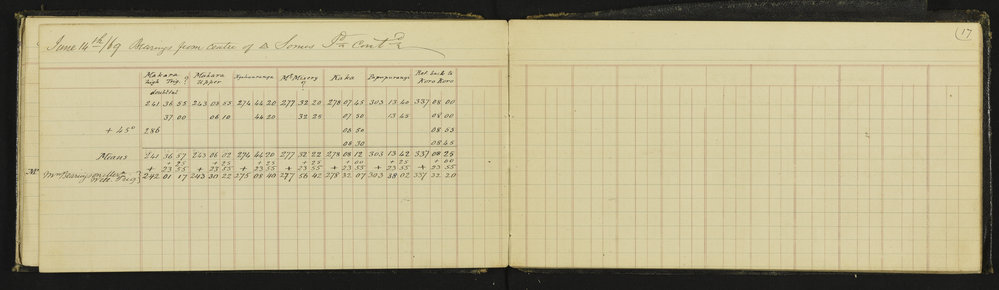 17
June 14th/69 Bearings from centre of △ Somes Id Contd
Makara high Trig. ? Makara Upper Ngahauranga Mt Misery ? Kaka Papaparanga Ret back to Koro Koro
doubtful
241 36 55 243 05 55 274 44 20 277 32 20 278 07 45 303 13 40 337 08 00
37 00 06 10 44 20 32 25 07 50 13 45 08 00
+ 45° 286 08 50 08 55
08 30 08 45
Means 241 36 57 243 06 02 274 44 20 277 32 22 278 08 12 303 13 42 337 08 25
+ 25 + 25 + 25 + 00 + 25 + 00
+ 23 55 + 23 55 + 23 55 + 23 55 + 23 55 + 23 55 + 23 55
Mn Bearings on Mer. Well. Trig 242 01 17 243 30 22 275 08 40 277 56 42 278 32 07 303 38 02 337 32 20